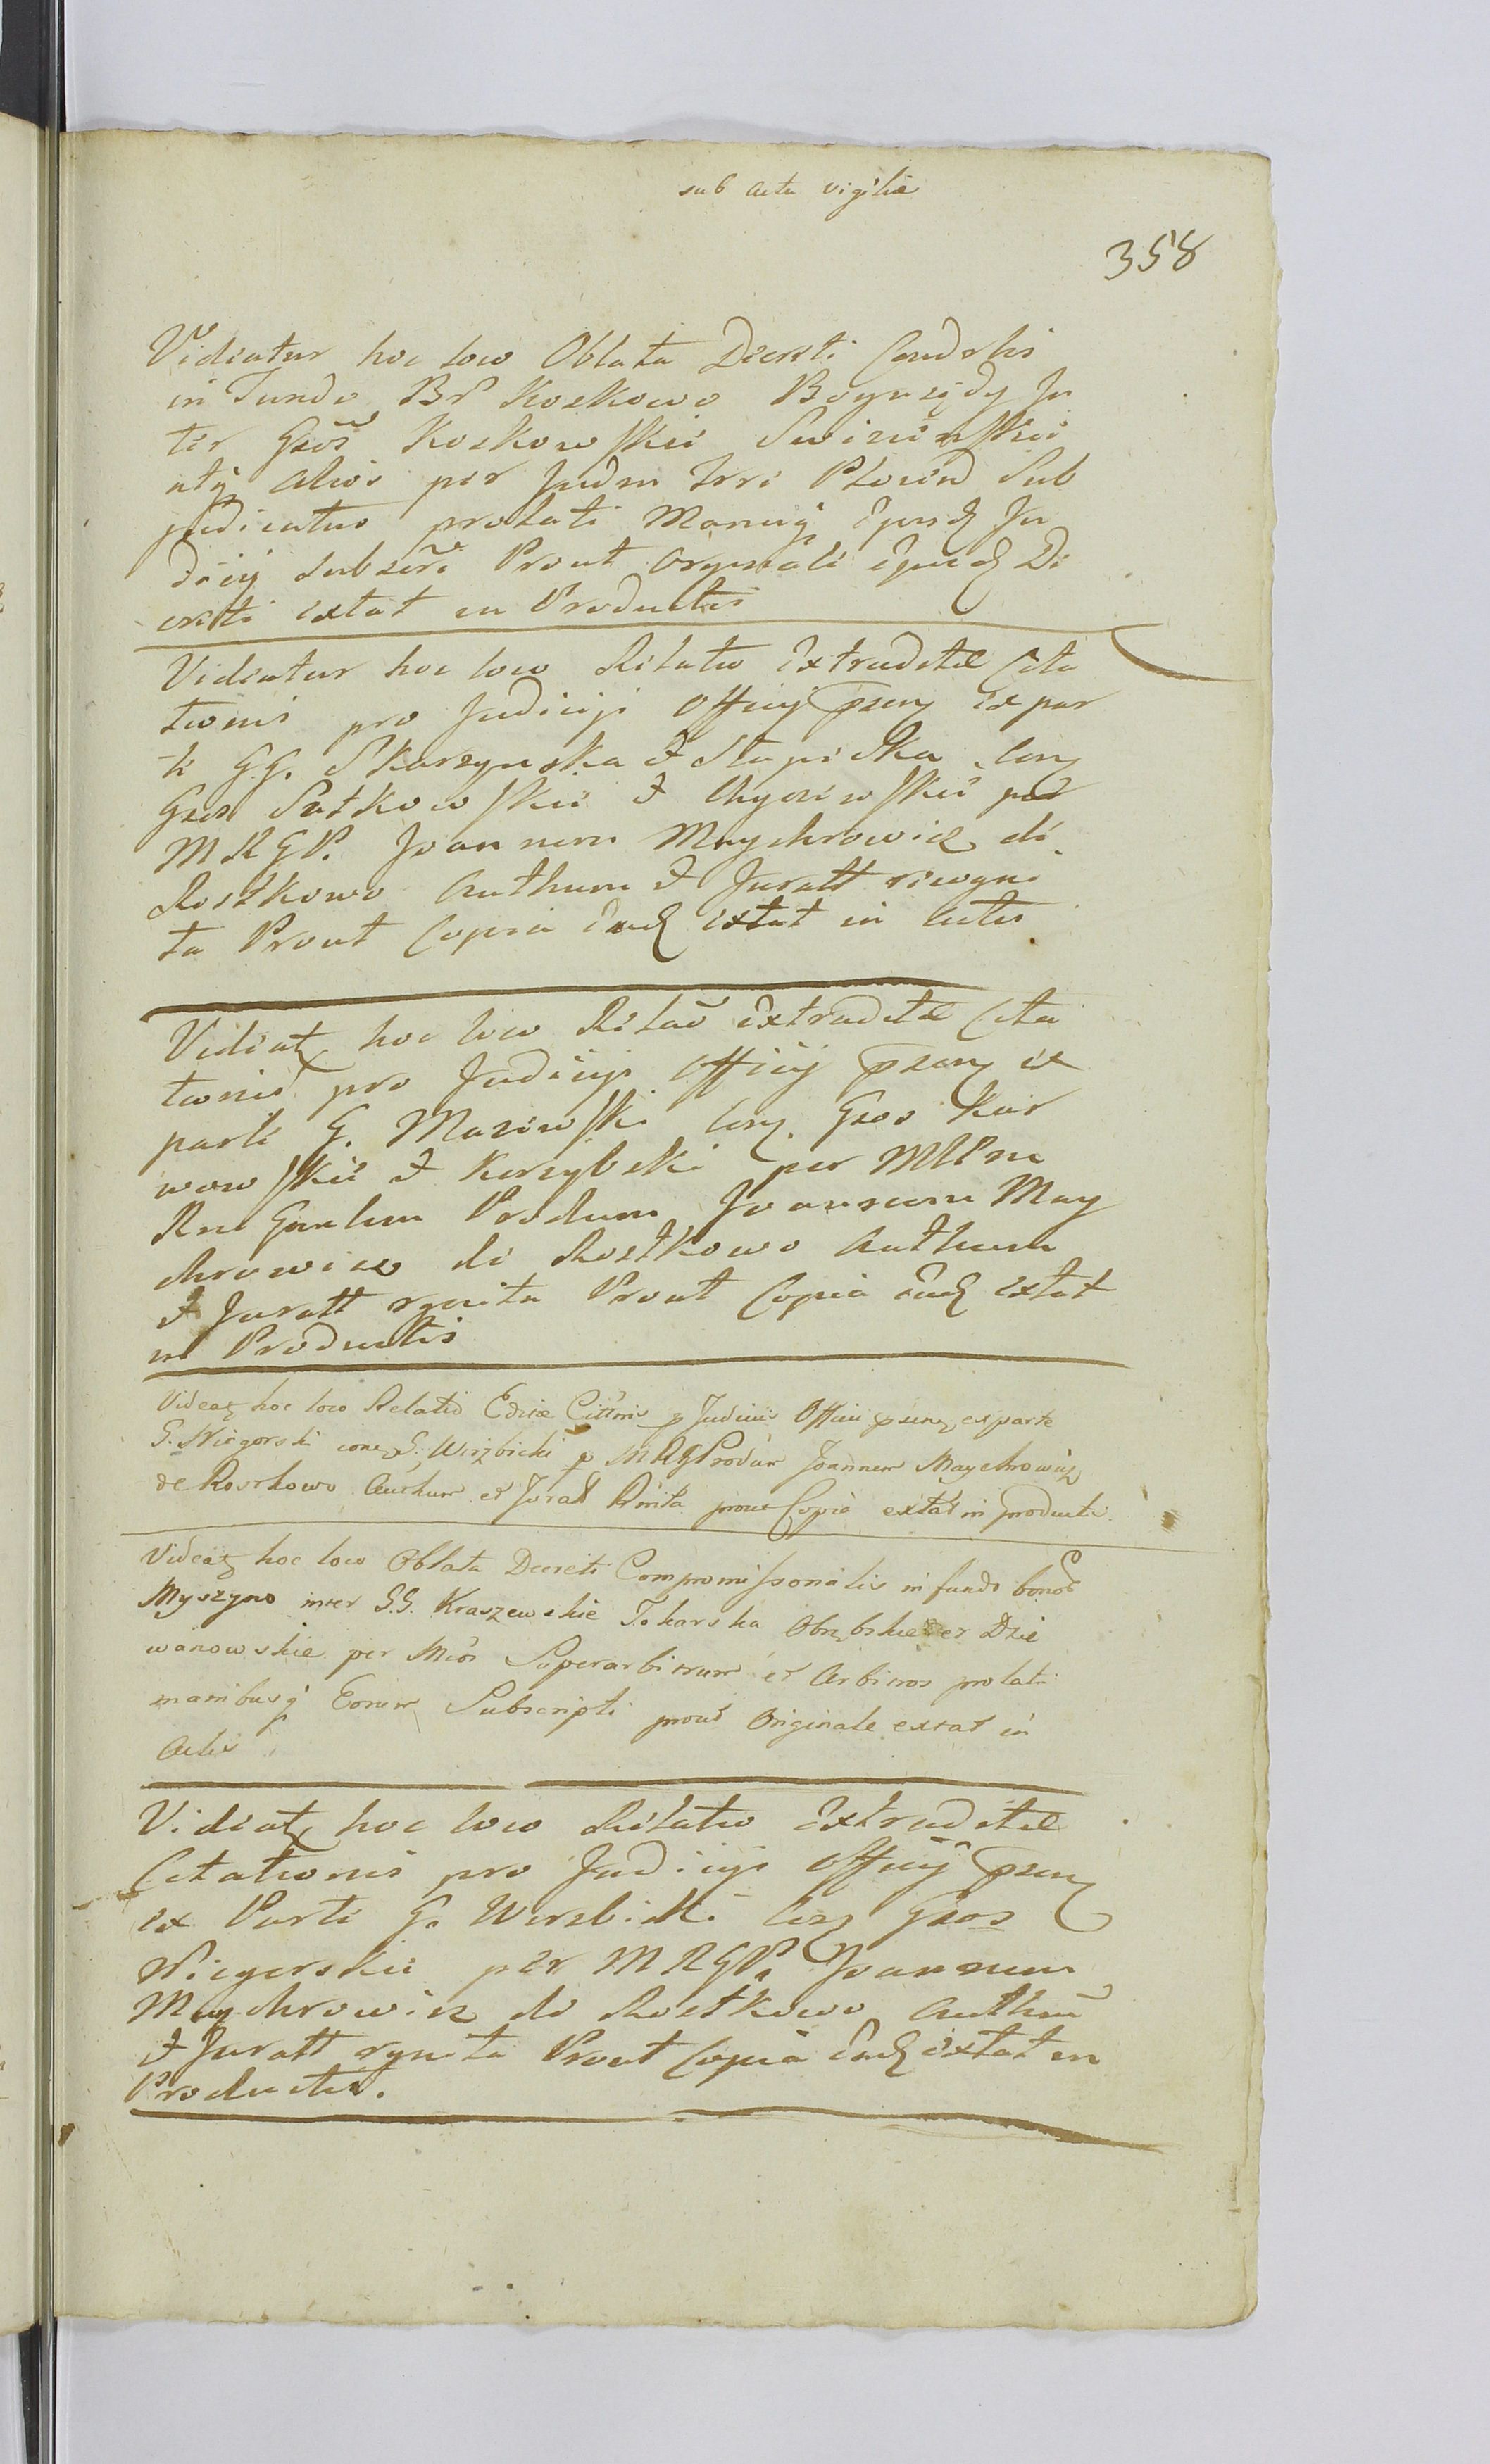 sub actu vigiliæ
358
Videatur hoc loco Oblata Decreti Condcti
in Fundo Br Koskowo Bogusędy In
ter Gsos Koskowskie Swizinskie
atq alios per Judm Trri Plocen Sub
judicatus prolati Manuq ejusd Ju
dicij subscri Prout Orginale ejusd De
creti extat in Productis
Videatur hoc loco Relatio Extraditæ Cita
tionis pro Judicijs Officij pseny ex par
te G.G. Skarzynska & Slupecka con
Gsos Sutkowskie & Chyczewskie per
M R G P. Joannem Maychrowicz de
Rostkowo Authum & Juratt recogni
ta Prout Copia Ead extat in Actis
Videat hoc loco Relao Extraditæ Cita
tionis pro Judicijs Officij pseny ex
parte G. Mazewski con Gsos Kar
wowskie & Kerzybski per MPm
Rm Gnalem Produm Joannem May
chrowicz de Rostkowo Authum
& Juratt rgnita Prout Copia ead extat
in Productis
Videat hoc loco Relatio Editæ Cittnis p Judiciis Officii pseny ex parte
G. Niegorski con G. Wirzbicki p MRG Produm Joannem Maychrowicz
de Rostkowo Authum et Jurat Rnita prout Copia extat in productis.
Videat hoc loco Oblata Decreti Compromissionalis in fundo bonor
Myszyno inter G.G. Kraszewskie Tokarska Obrębskie et Dzie
wanowskie per Mcos Superarbitrum et Arbitros prolati
manibusq Eorum Subscripti prout Originale extat in
Actis
Videat hoc loco Relatio Extraditæ
Citationis pro Judicijs Officij pseny
ex Parte G. Wirzbicki con Gsos
Niegorskie per M R G P. Joannem
Maychrowicz de Rostkowo Authum
& Juratt rgnita Prout Copia Ead extat in
Productis.